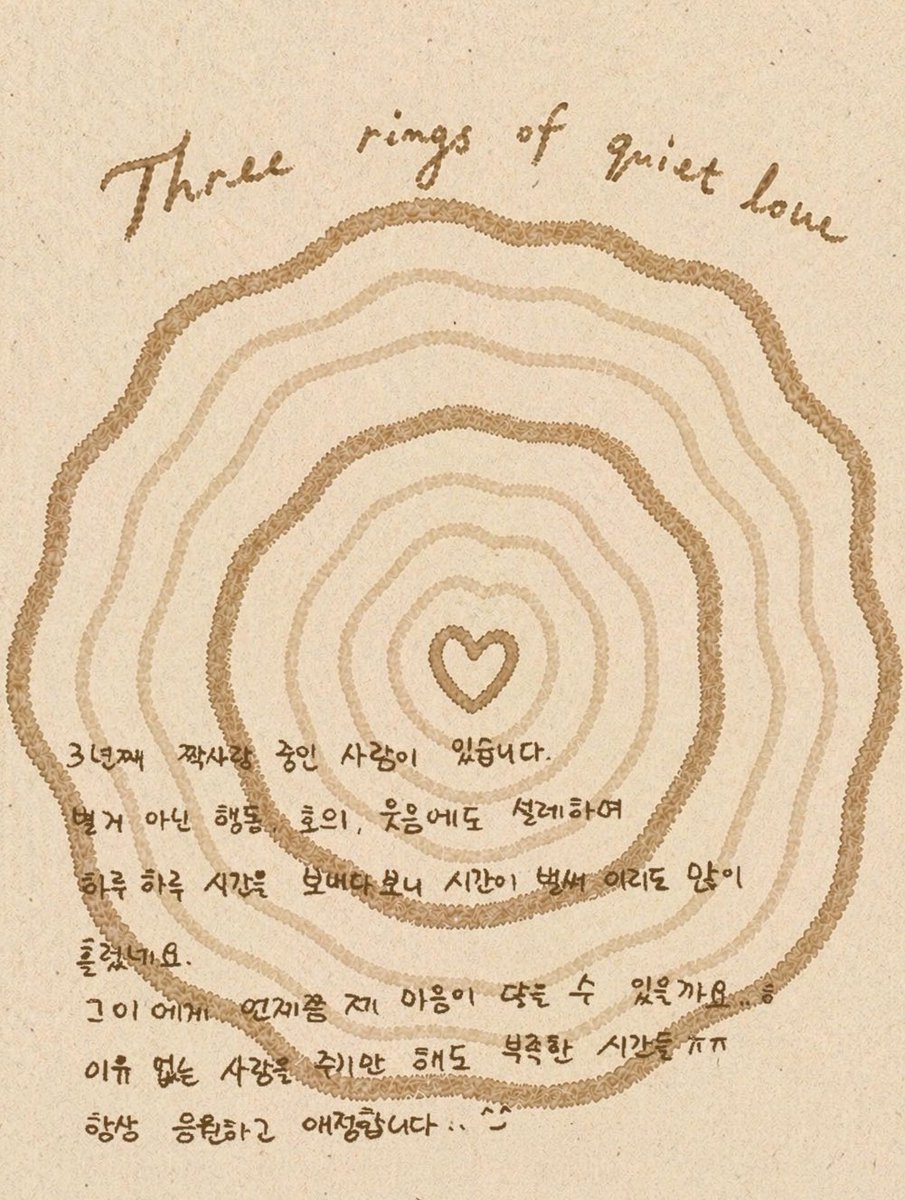 Three rings of quiet love
3년째 짝사랑 중인 사람이 있습니다.
별거 아닌 행동, 호의, 웃음에도 설레하여
하루 하루 시간을 보내다보니 시간이 벌써 이리도 많이
흘렀네요.
그이에게 언제쯤 제 마음이 닿을 수 있을까요..ㅎ
이유 없는 사랑을 주기만 해도 부족한 시간들ㅠㅠ
항상 응원하고 애정합니다.. ^^